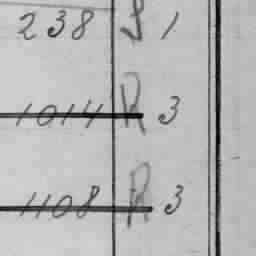 238 S 1
1014 R 3
1108 R 3